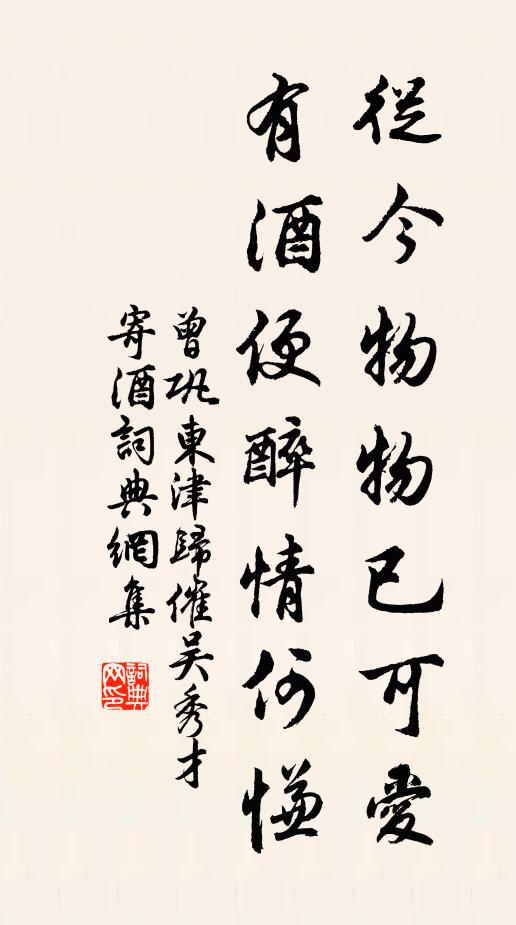 從今物物已可愛
有酒便醉情何慊
曾鞏東津歸催吳秀才
寄酒詞典網集
詞典網印